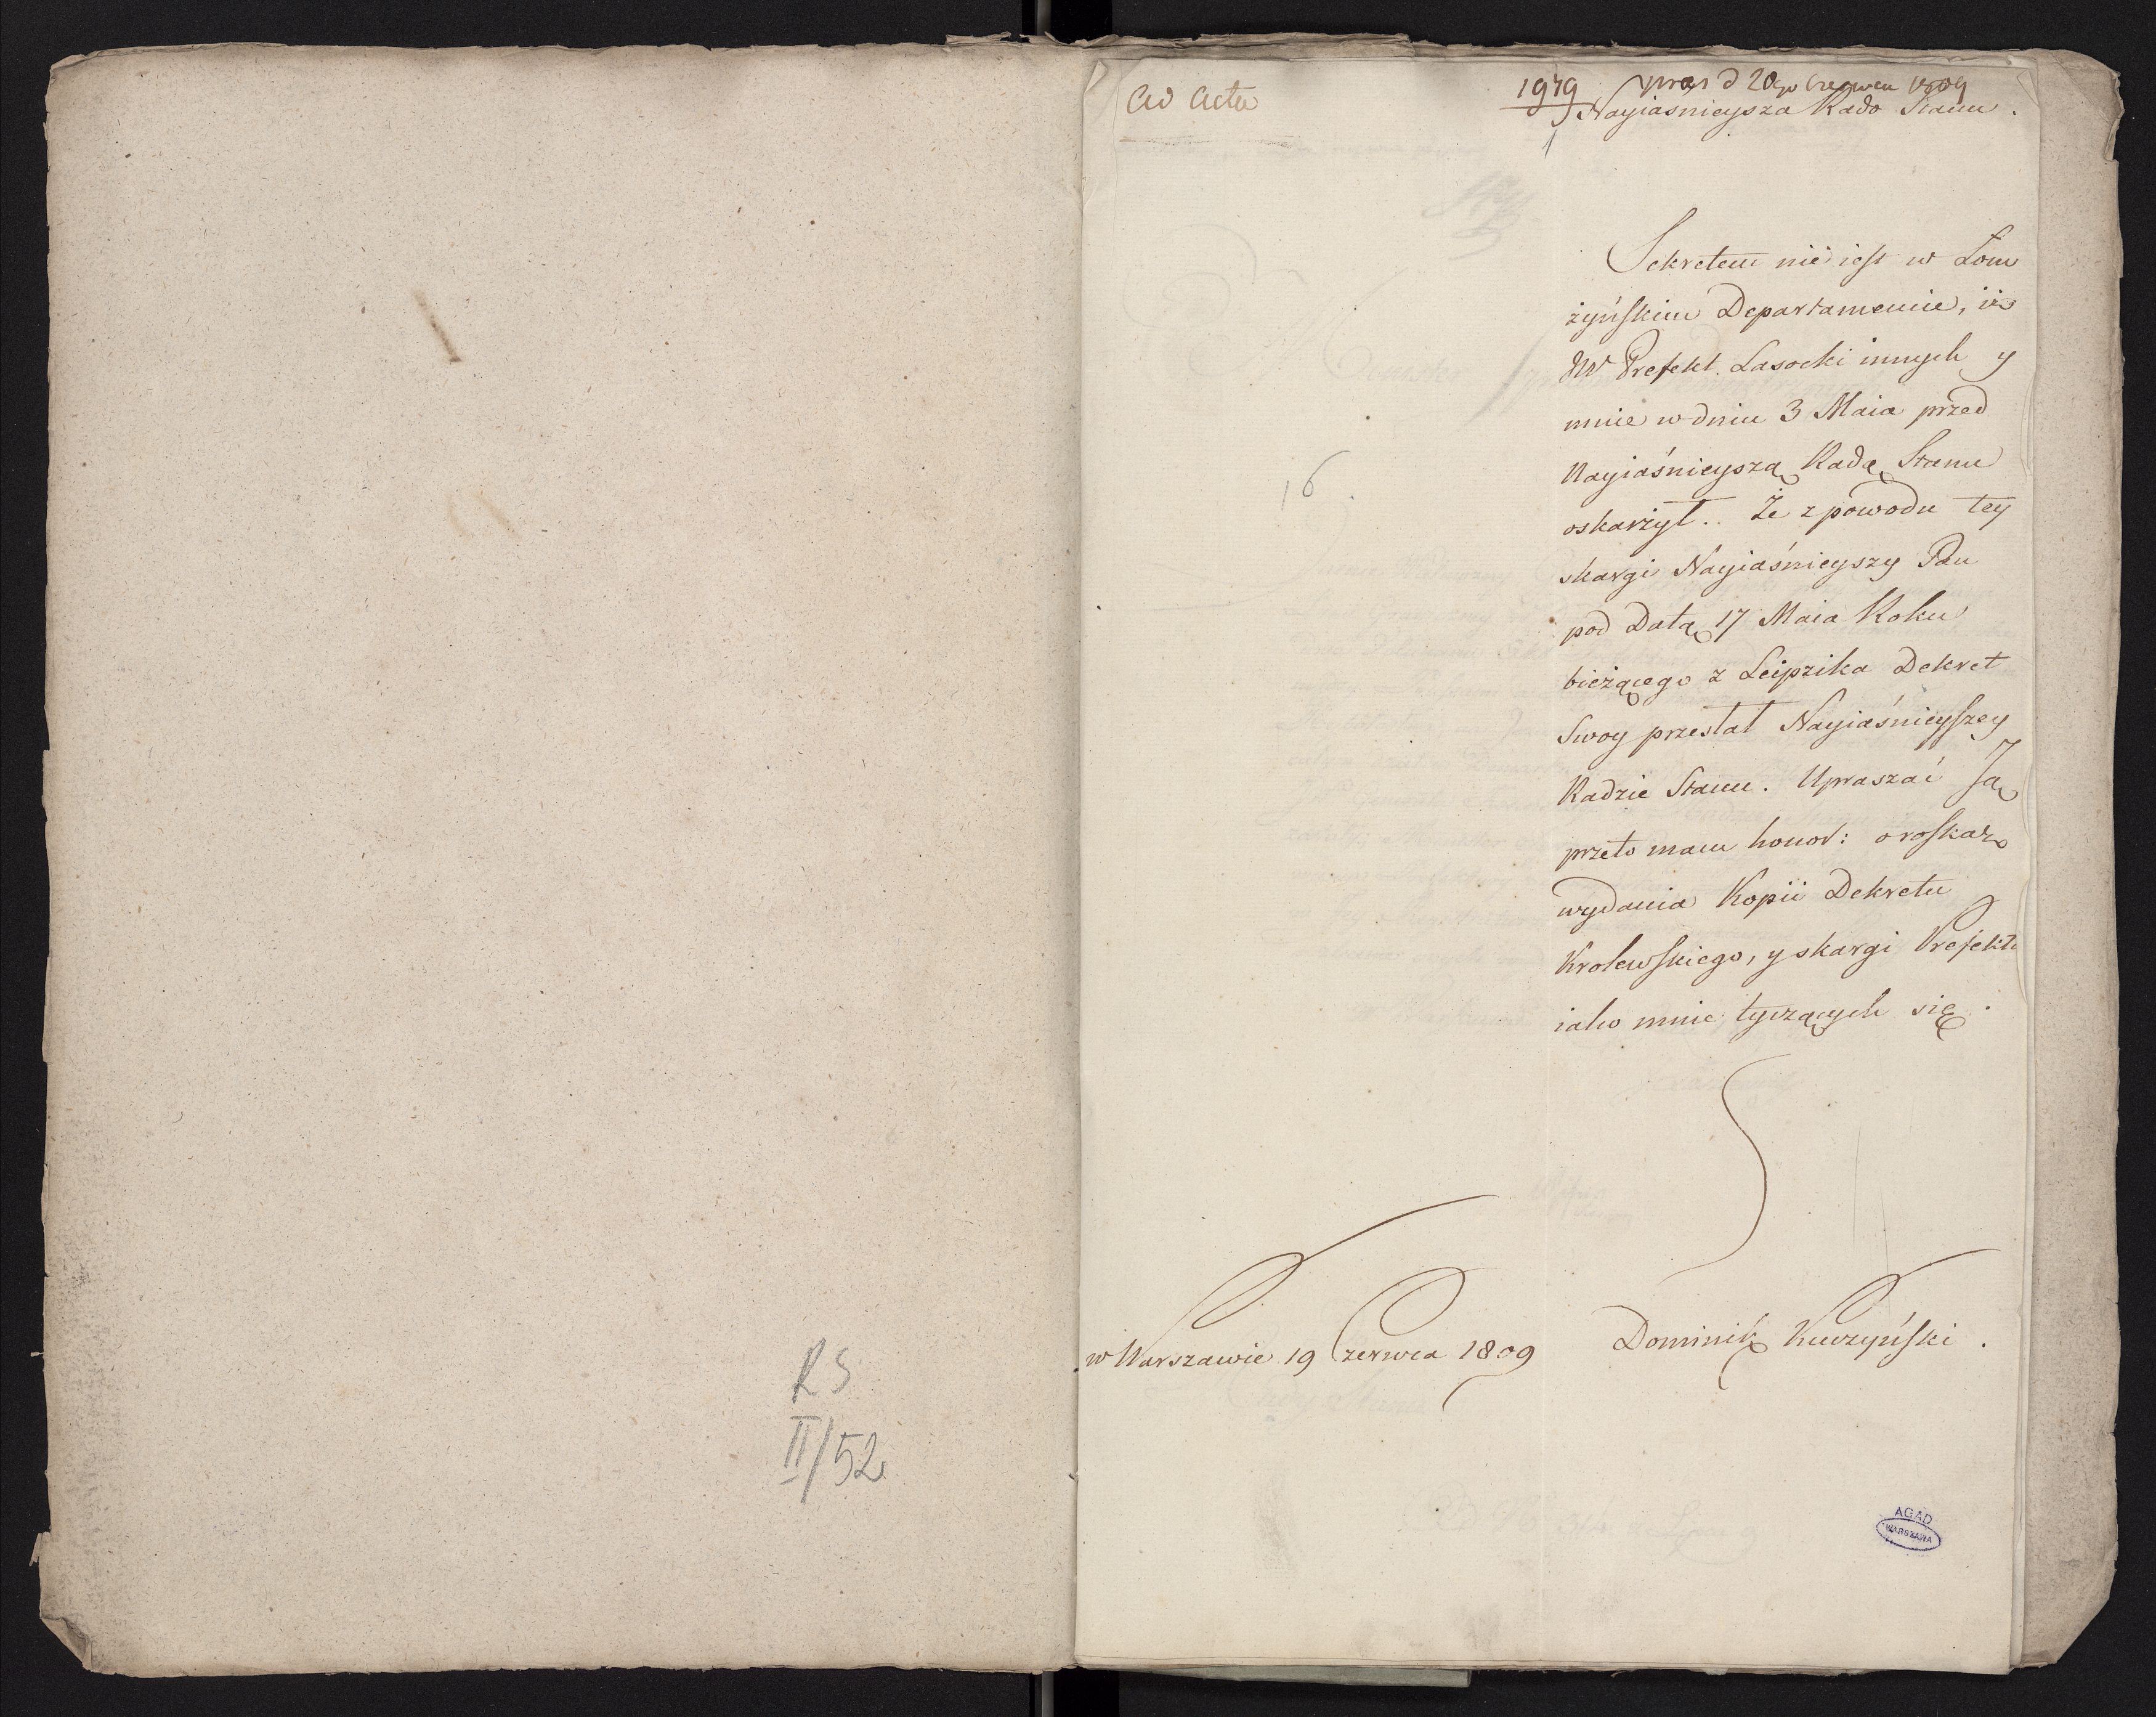 RS
II/52
Ad Acta
1979
præs d 20go Czerwca 1809
Nayiasnieysza Rado Stanu.
1
Sekretem nie iest w Łom
żyńskim Departamencie, iż
JW Prefekt Lasocki innych y
mnie w dniu 3 Maia przed
Nayiaśnieyszą Radą Stanu
16.
oskarżył.. Że z powodu tey
skargi Nayiaśnieyszy Pan
pod Datą 17 Maia Roku
bieżącego z Leipzika Dekret
Swoy przesłał Nayiaśnieyszey
Radzie Stanu. Upraszać Ją
przeto mam honor: o roskaz
wydania Kopii Dekretu
Krolewskiego, y skargi Prefekta
iako mnie tyczących się.
w Warszawie 19 Czerwca 1809
Dominik Kuczyński.
AGAD
WARSZAWA